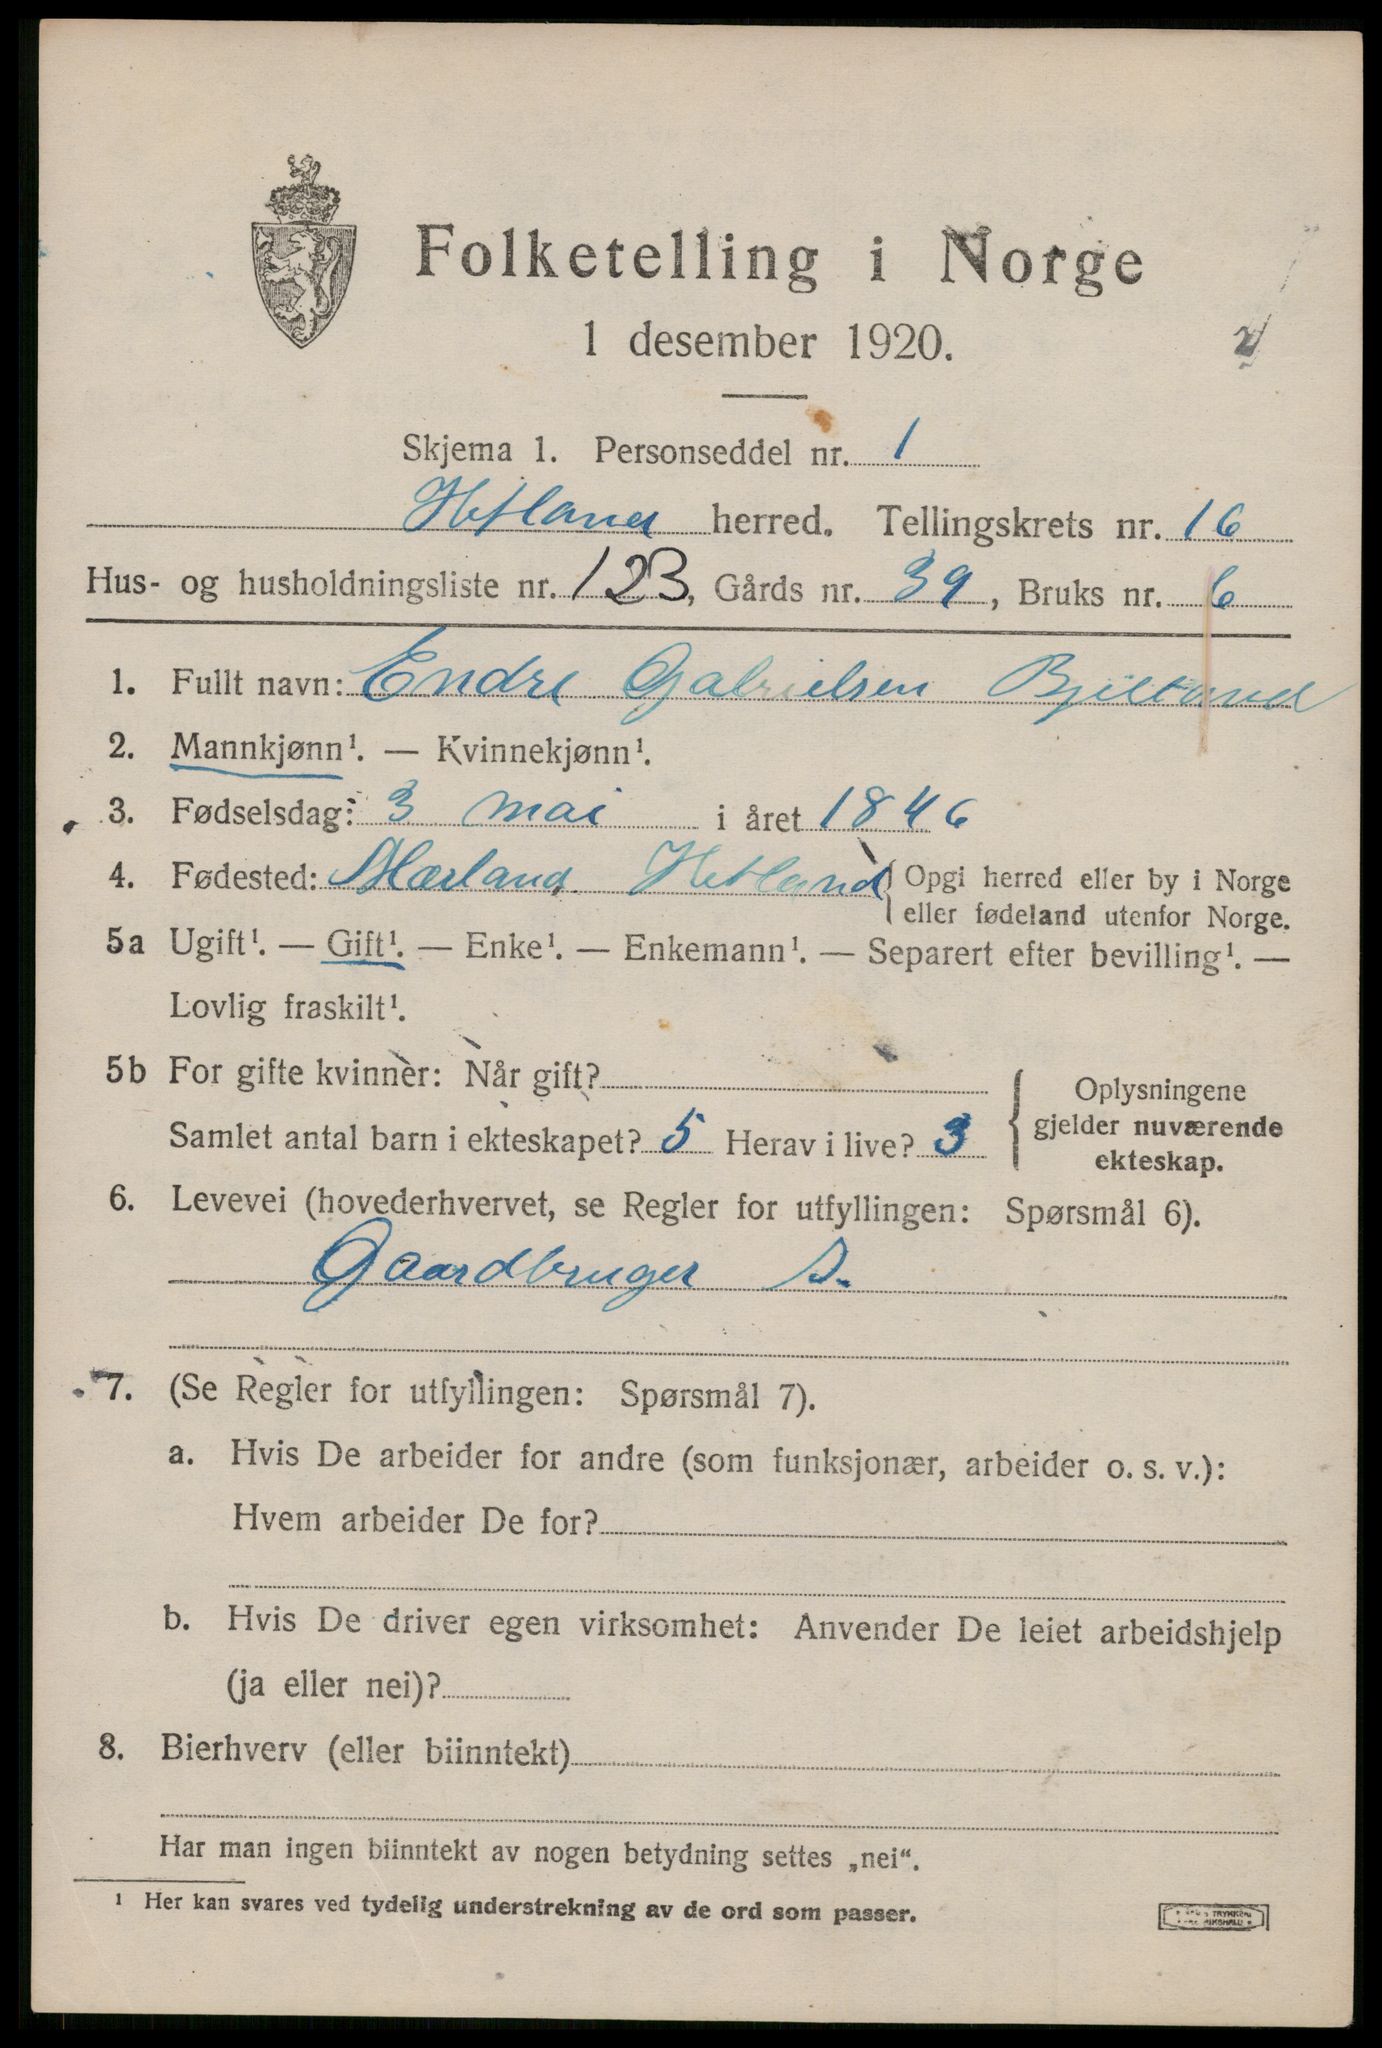 Folketelling i Norge
1 desember 1920.
Skjema 1. Personseddel nr. 1
Hetland herred. Tellingskrets nr. 16
Hus- og husholdningsliste nr. 123, Gårds nr. 39, Bruks nr. 6
1. Fullt navn: Endre Gabrielsen
2. Mannkjønn¹. — Kvinnekjønn¹.
3. Fødselsdag: 3 mai i året 1846
4. Fødested: Hetland { Opgi herred eller by i Norge
eller fødeland utenfor Norge.
5a Ugift¹. — Gift¹. — Enke¹. — Enkemann¹. — Separert efter bevilling¹. —
Lovlig fraskilt¹.
5b For gifte kvinner: Når gift?
Samlet antal barn i ekteskapet? 5 Herav i live? 3
{ Oplysningene
gjelder nuværende
ekteskap.
6. Levevei (hovederhvervet, se Regler for utfyllingen: Spørsmål 6).
Gaardbruger S.
7. (Se Regler for utfyllingen: Spørsmål 7).
a. Hvis De arbeider for andre (som funksjonær, arbeider o. s. v.):
Hvem arbeider De for?
b. Hvis De driver egen virksomhet: Anvender De leiet arbeidshjelp
(ja eller nei)?
8. Bierhverv (eller biinntekt)
Har man ingen biinntekt av nogen betydning settes „nei“.
¹ Her kan svares ved tydelig understrekning av de ord som passer.